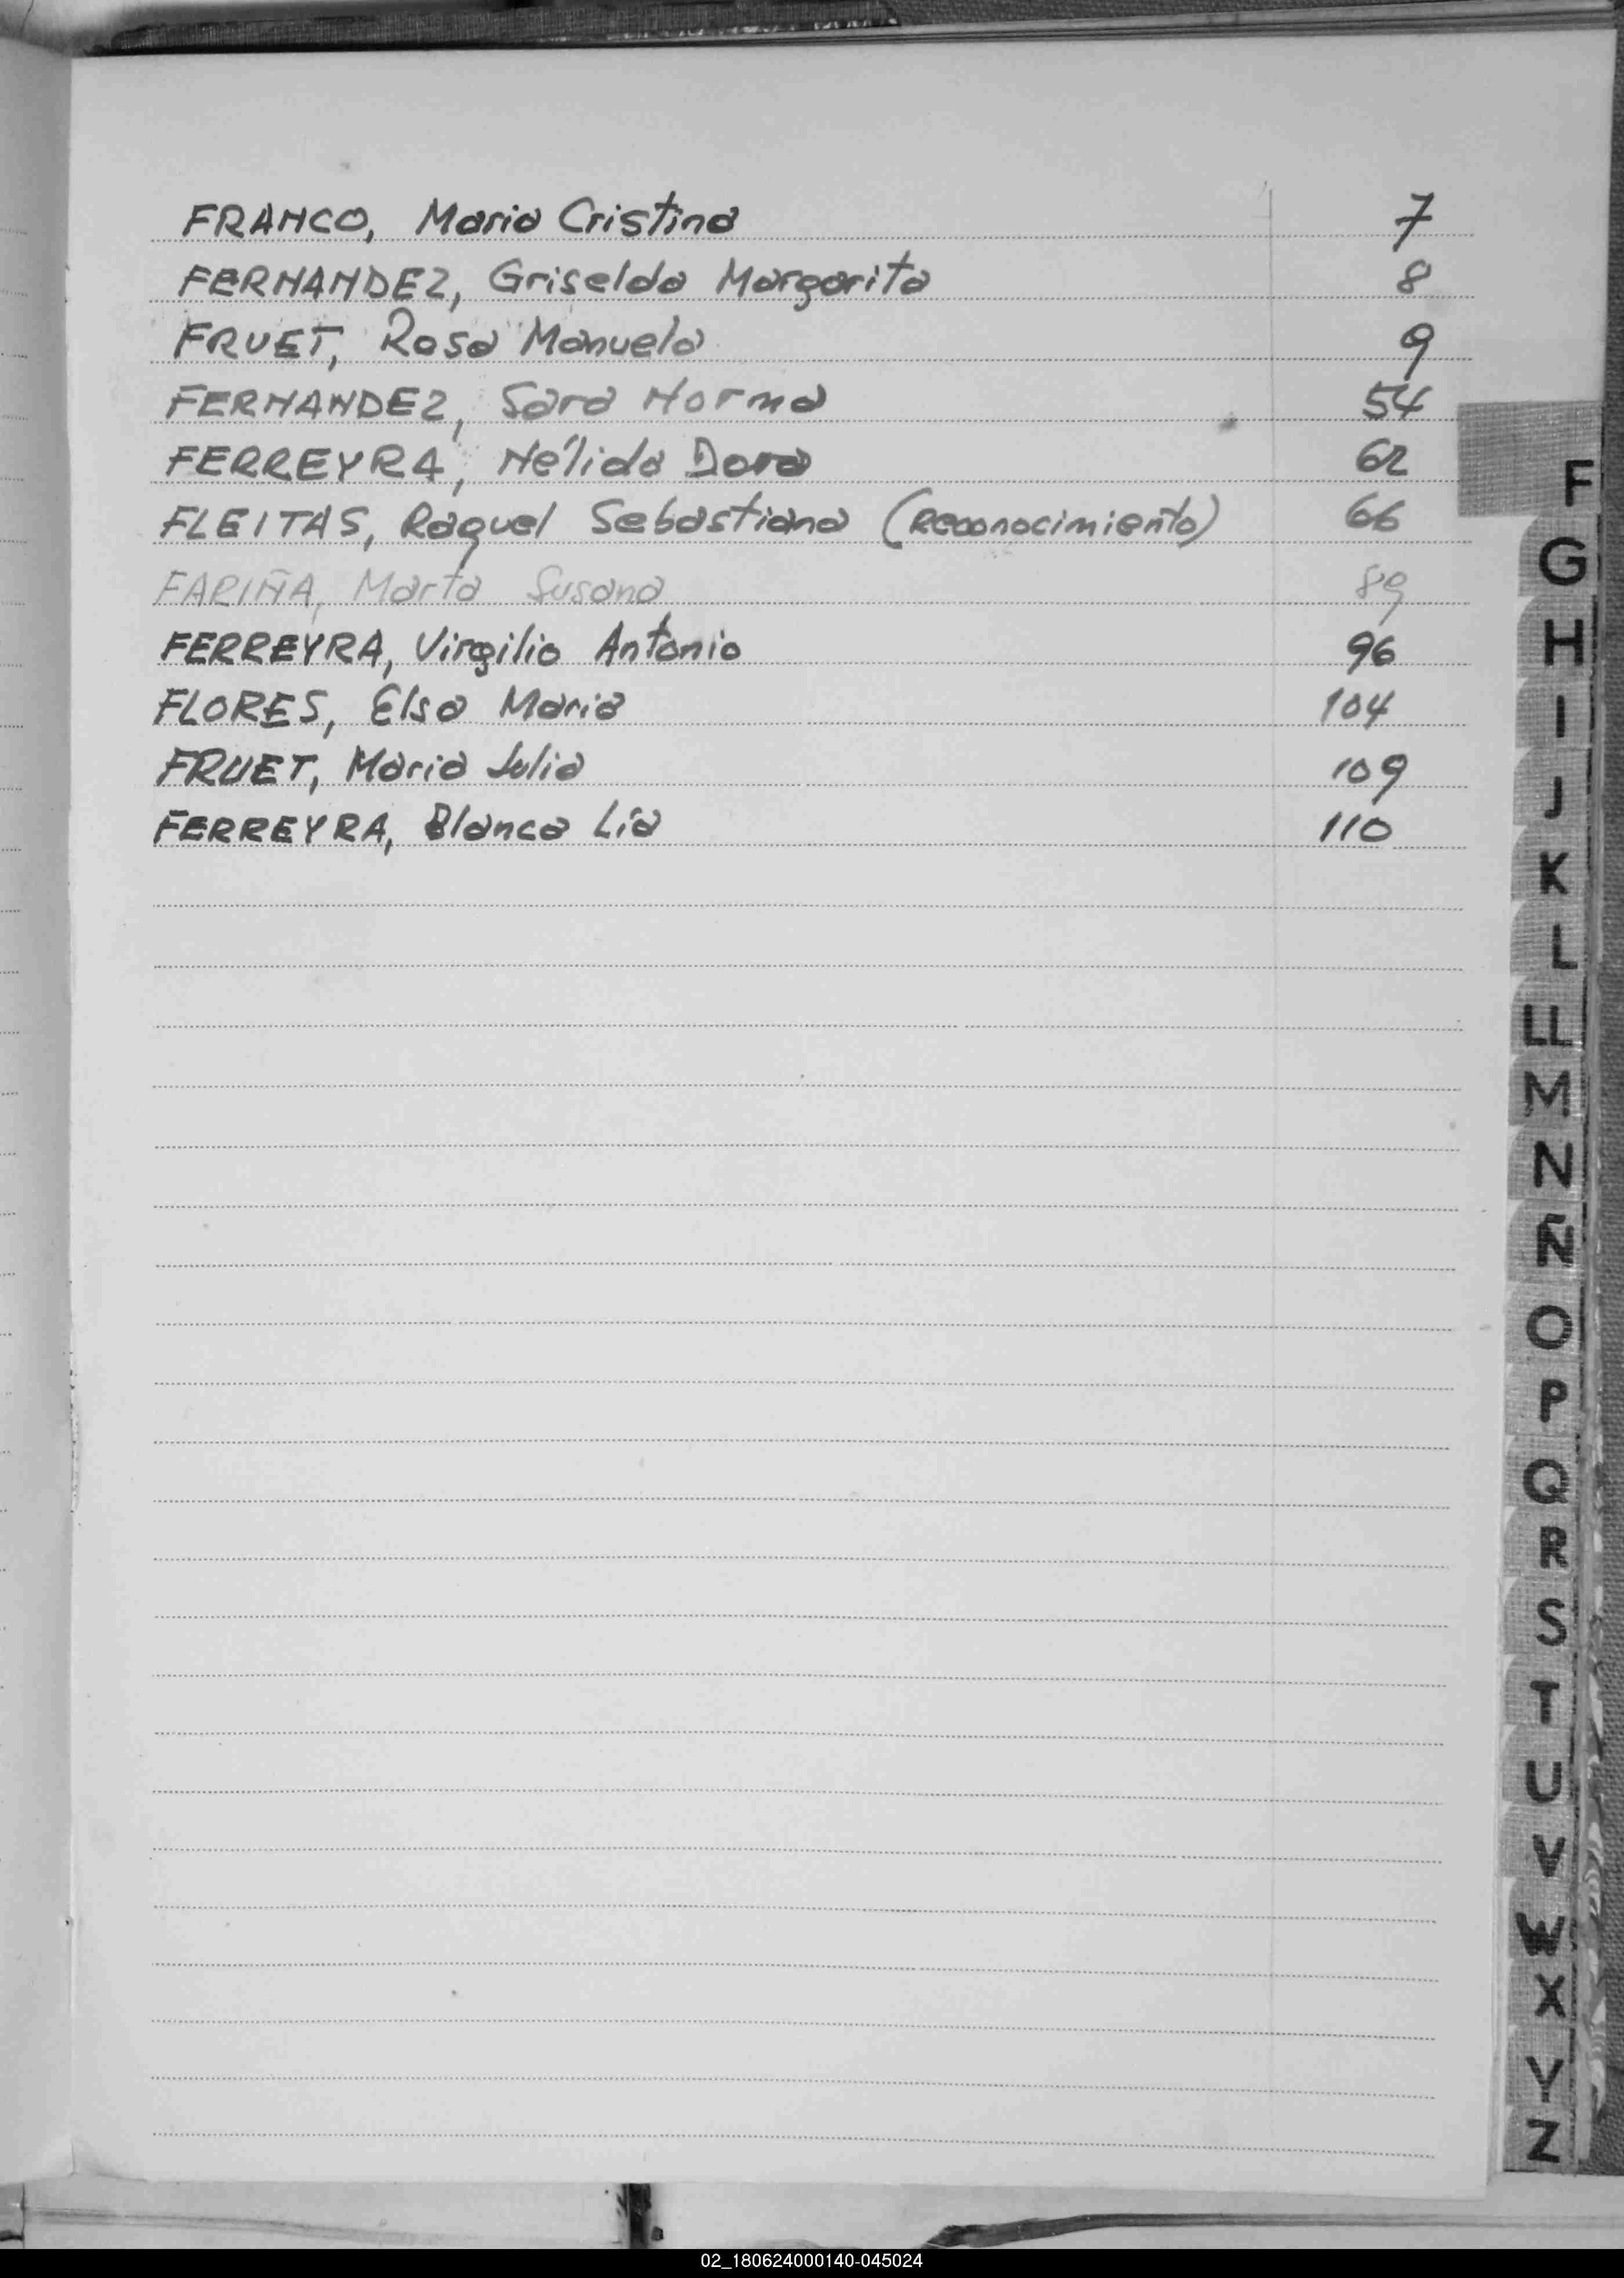 FRANCO, Maria Cristina 7
FERNANDEZ, Griselda Margarita 8
FRUET, Rosa Manuela 9
FERNANDEZ, Sara Norma 54
FERREYRA, Nélida Dora 62
FLEITAS, Raquel Sebastiana (Reconocimiento) 66
FARIÑA, Marta Susana 89
FERREYRA, Virgilio Antonio 96
FLORES, Elsa Maria 104
FRUET, Maria Julia 109
FERREYRA, Blanca Lía 110
F
G
H
I
J
K
L
LL
M
N
Ñ
O
P
Q
R
S
T
U
V
W
X
Y
Z
02_180624000140-045024